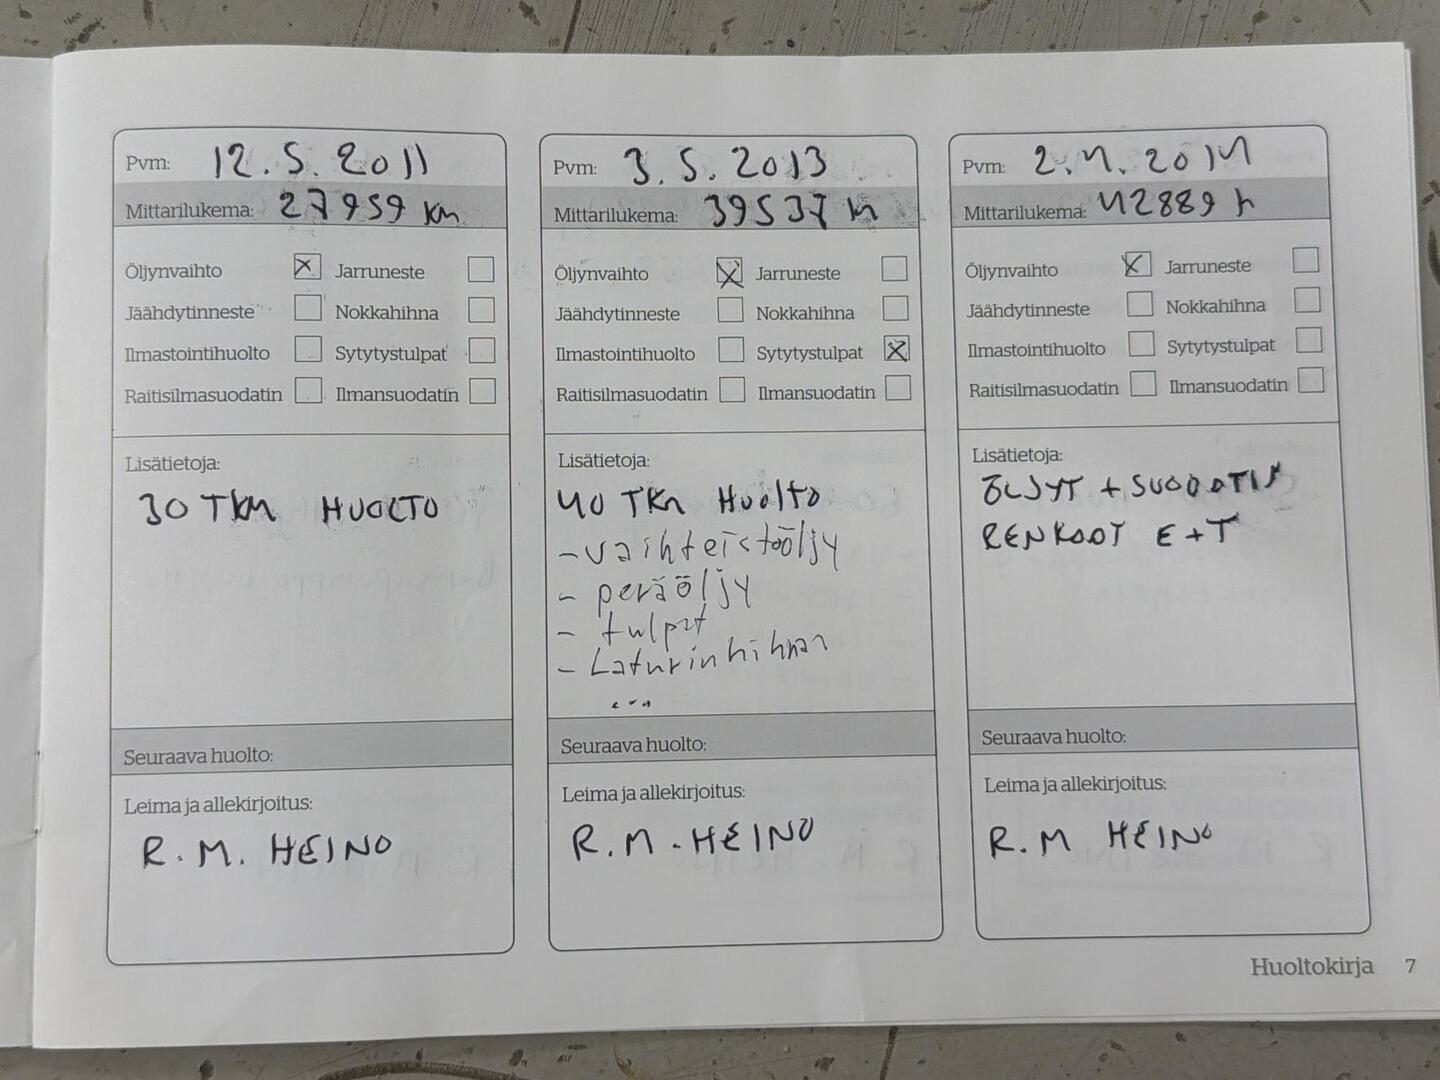 Pvm: 12.5.2011
Mittarilukema: 27959 km
Öljynvaihto x Jarruneste
Jäähdytinneste Nokkahihna
Ilmastointihuolto Sytytystulpat
Raitisilmasuodatin Ilmansuodatin
Lisätietoja:
30 TKM HUOLTO
Seuraava huolto:
Leima ja allekirjoitus:
R.M. HEINO
Pvm: 3.5.2013
Mittarilukema: 39537 km
Öljynvaihto x Jarruneste
Jäähdytinneste Nokkahihna
Ilmastointihuolto Sytytystulpat x
Raitisilmasuodatin Ilmansuodatin
Lisätietoja:
40 TKM HUOLTO
- vaihteistoöljy
- peräöljy
- tulpat
- Laturinhihnan
...
Seuraava huolto:
Leima ja allekirjoitus:
R.M. HEINO
Pvm: 2.4.2014
Mittarilukema: 42889
Öljynvaihto x Jarruneste
Jäähdytinneste Nokkahihna
Ilmastointihuolto Sytytystulpat
Raitisilmasuodatin Ilmansuodatin
Lisätietoja:
ÖLJYT + SUODATIN
RENKAAT E+T
Seuraava huolto:
Leima ja allekirjoitus:
R.M HEINO
Huoltokirja 7